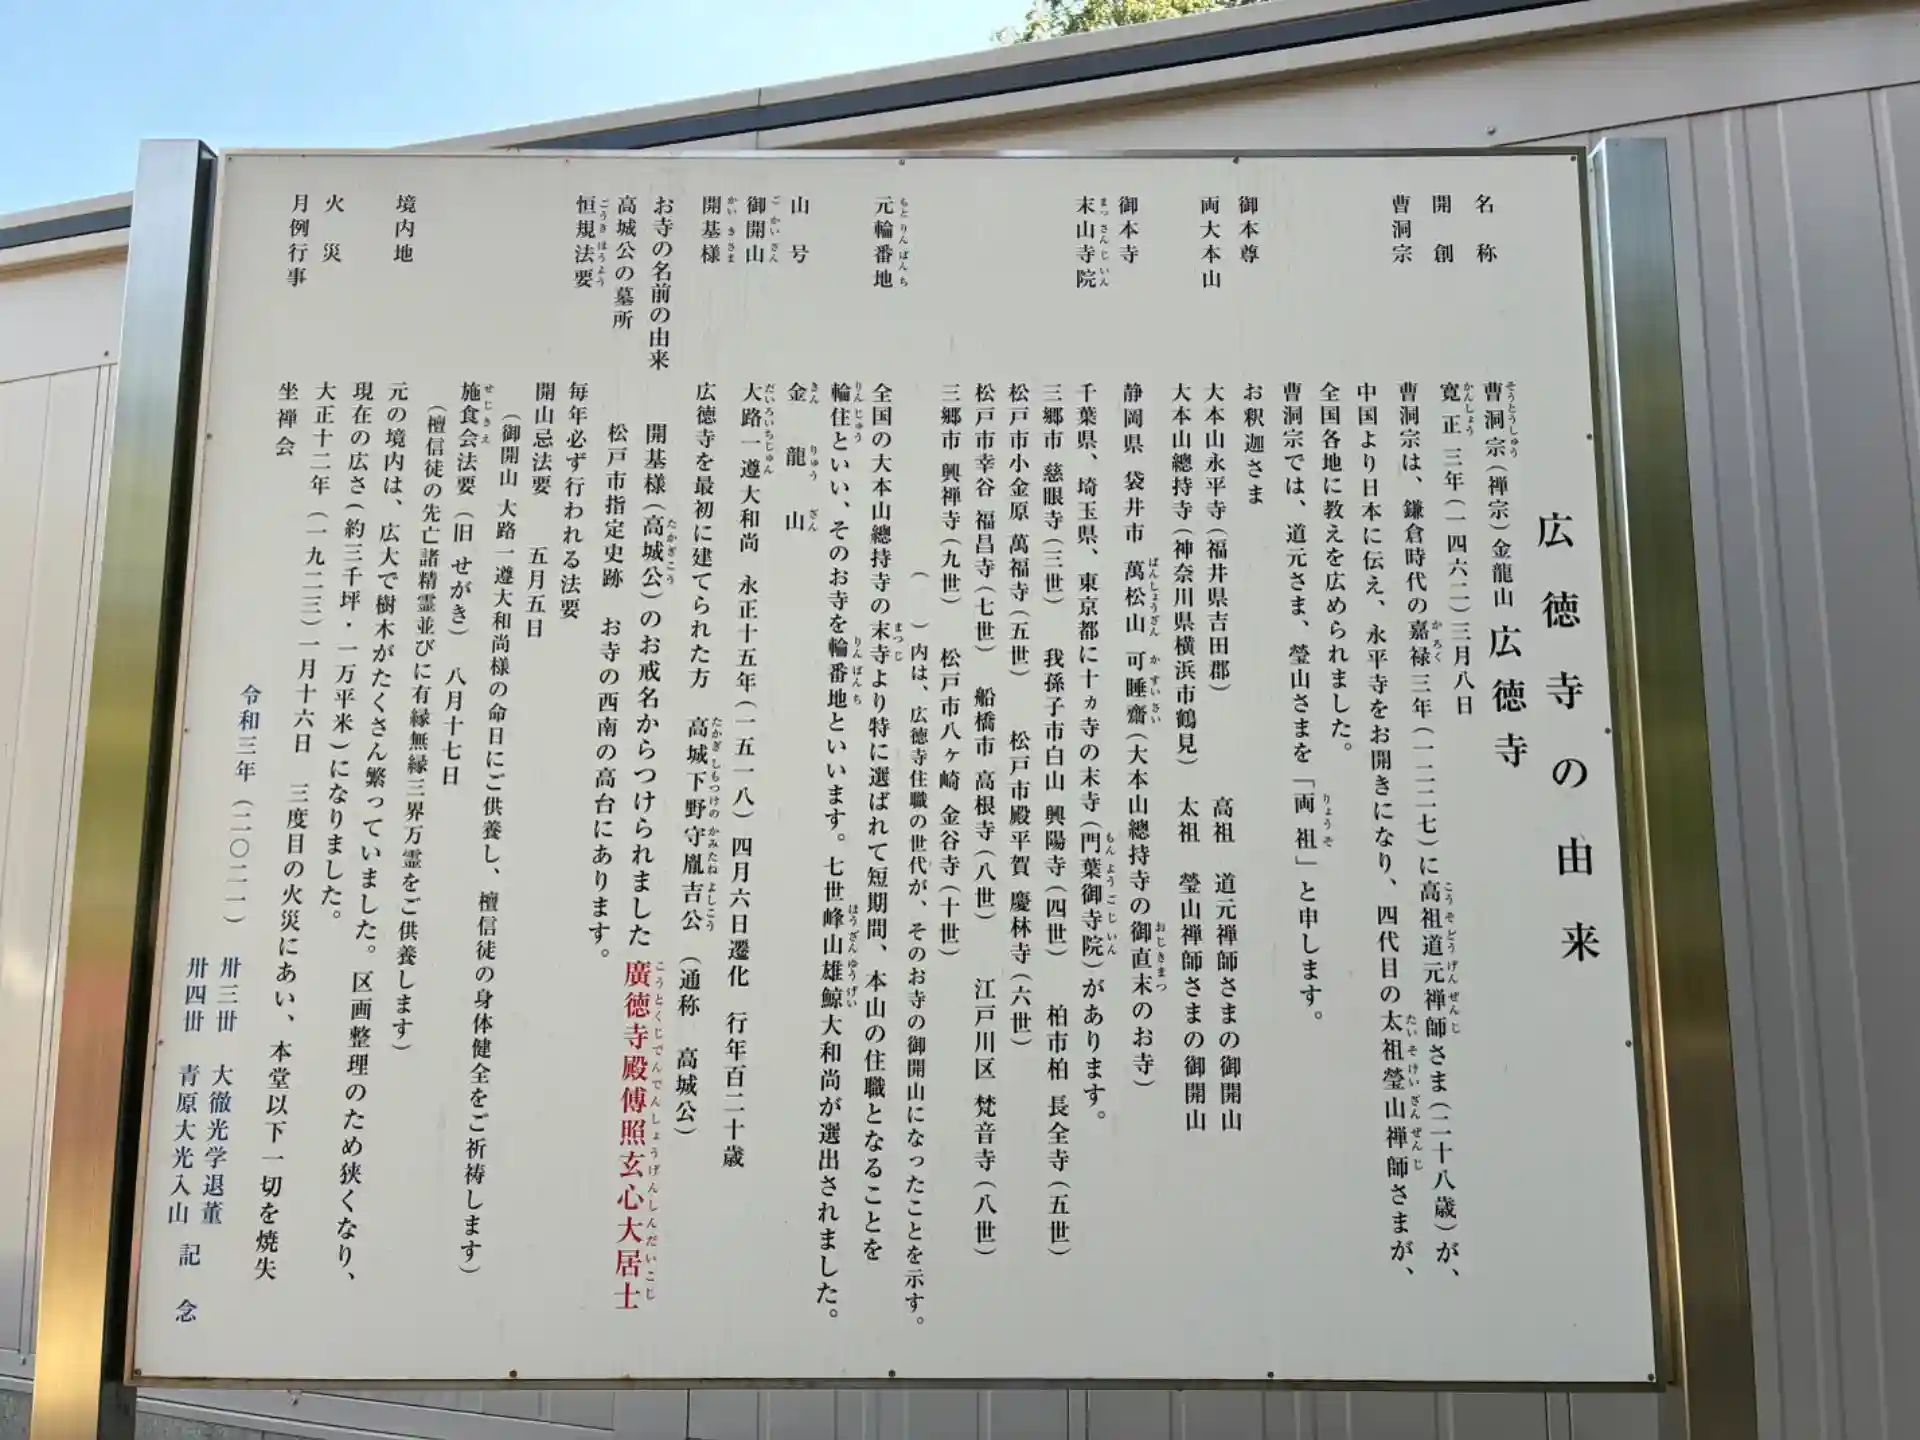 広徳寺の由来
名称 曹洞宗(禅宗)金龍山 広徳寺
開創 寛正三年(一四六二)三月八日
曹洞宗 曹洞宗は、鎌倉時代の嘉禄三年(一二二七)に高祖道元禅師さま(二十八歳)が、
中国より日本に伝え、永平寺をお開きになり、四代目の太祖瑩山禅師さまが、
全国各地に教えを広められました。
曹洞宗では、道元さま、瑩山さまを「両祖」と申します。
御本尊 お釈迦さま
両大本山 大本山永平寺(福井県吉田郡) 高祖 道元禅師さまの御開山
大本山總持寺(神奈川県横浜市鶴見) 太祖 瑩山禅師さまの御開山
御本寺 静岡県 袋井市 萬松山 可睡齋(大本山總持寺の御直末のお寺)
末山寺院 千葉県、埼玉県、東京都に十ヵ寺の末寺(門葉御寺院)があります。
三郷市 慈眼寺(三世) 我孫子市白山 興陽寺(四世) 柏市柏 長全寺(五世)
松戸市小金原 萬福寺(五世) 松戸市殿平賀 慶林寺(六世)
松戸市幸谷 福昌寺(七世) 船橋市 高根寺(八世) 江戸川区 梵音寺(八世)
三郷市 興禅寺(九世) 松戸市八ヶ崎 金谷寺(十世)
( )内は、広徳寺住職の世代が、そのお寺の御開山になったことを示す。
元輪番地 全国の大本山總持寺の末寺より特に選ばれて短期間、本山の住職となることを
輪住といい、そのお寺を輪番地といいます。七世峰山雄鯨大和尚が選出されました。
山号 金龍山
御開山 大路一遵大和尚 永正十五年(一五一八)四月六日遷化 行年百二十歳
開基様 広徳寺を最初に建てられた方 高城下野守胤吉公(通称 高城公)
お寺の名前の由来 開基様(高城公)のお戒名からつけられました 廣徳寺殿傅照玄心大居士
高城公の墓所 松戸市指定史跡 お寺の西南の高台にあります。
恒規法要 毎年必ず行われる法要
開山忌法要 五月五日
(御開山 大路一遵大和尚様の命日にご供養し、檀信徒の身体健全をご祈祷します)
施食会法要(旧 せがき) 八月十七日
(檀信徒の先亡諸精霊並びに有縁無縁三界万霊をご供養します)
境内地 元の境内は、広大で樹木がたくさん繁っていました。区画整理のため狭くなり、
現在の広さ(約三千坪・一万平米)になりました。
火災 大正十二年(一九二三)一月十六日 三度目の火災にあい、本堂以下一切を焼失
月例行事 坐禅会
令和三年(二〇二一) 卅三丗 大徹光学退董
卅四丗 青原大光入山 記念